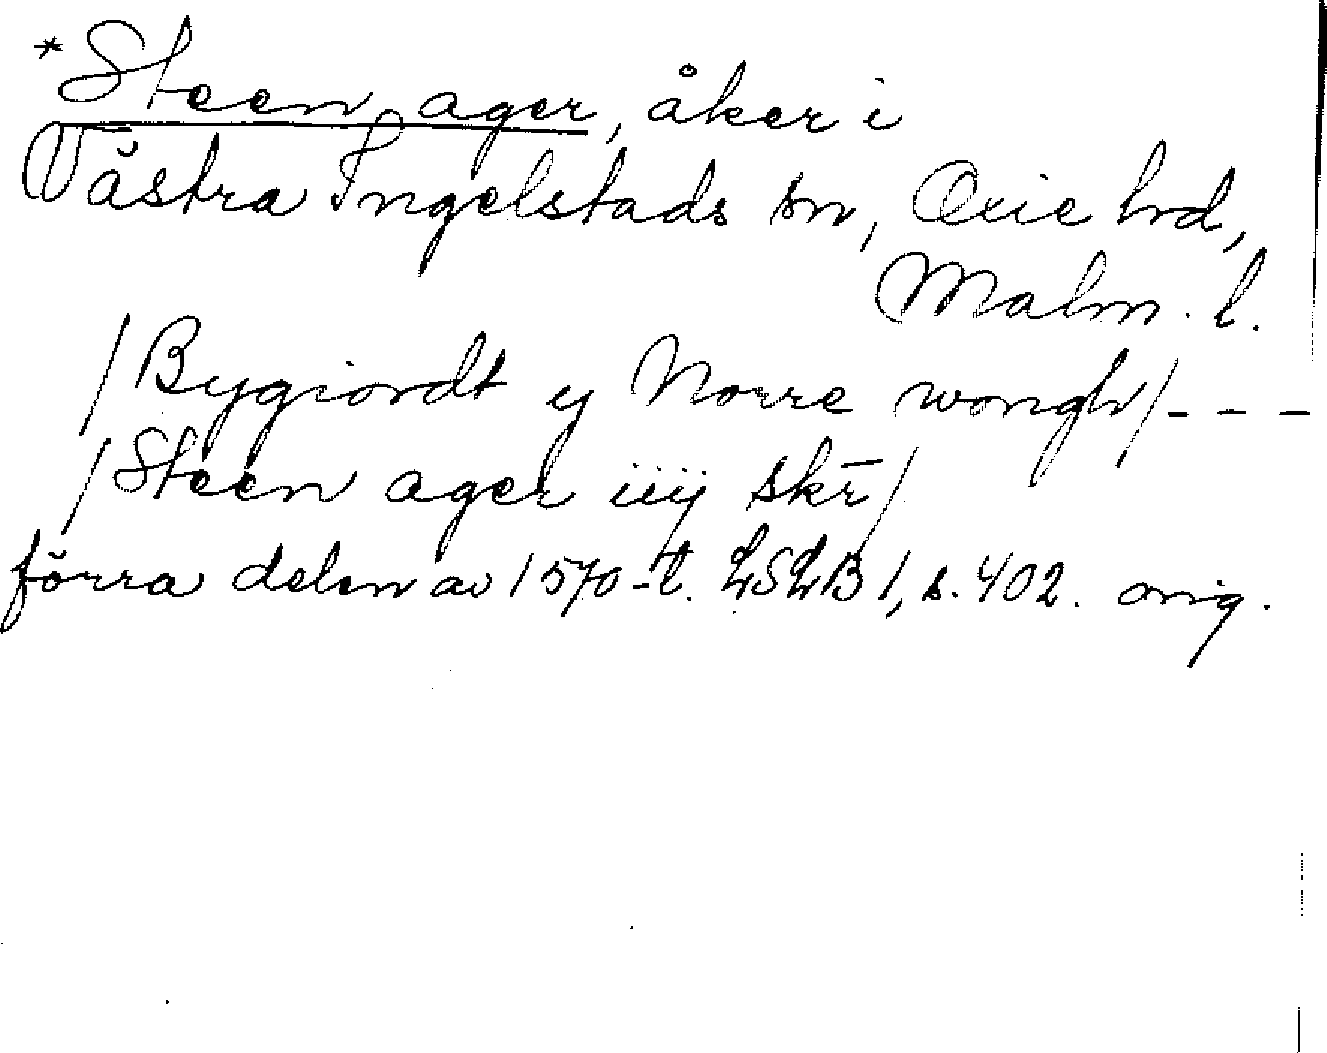 *Steen ager, åker i
Västra Ingelstads sn, Oxie hrd,
Malm. l.
/Bygiordt ij Norre wongh/- - -
/Steen ager iiij skr̄/
förra delen av 1570-t. LSLB 1, s. 402. orig.